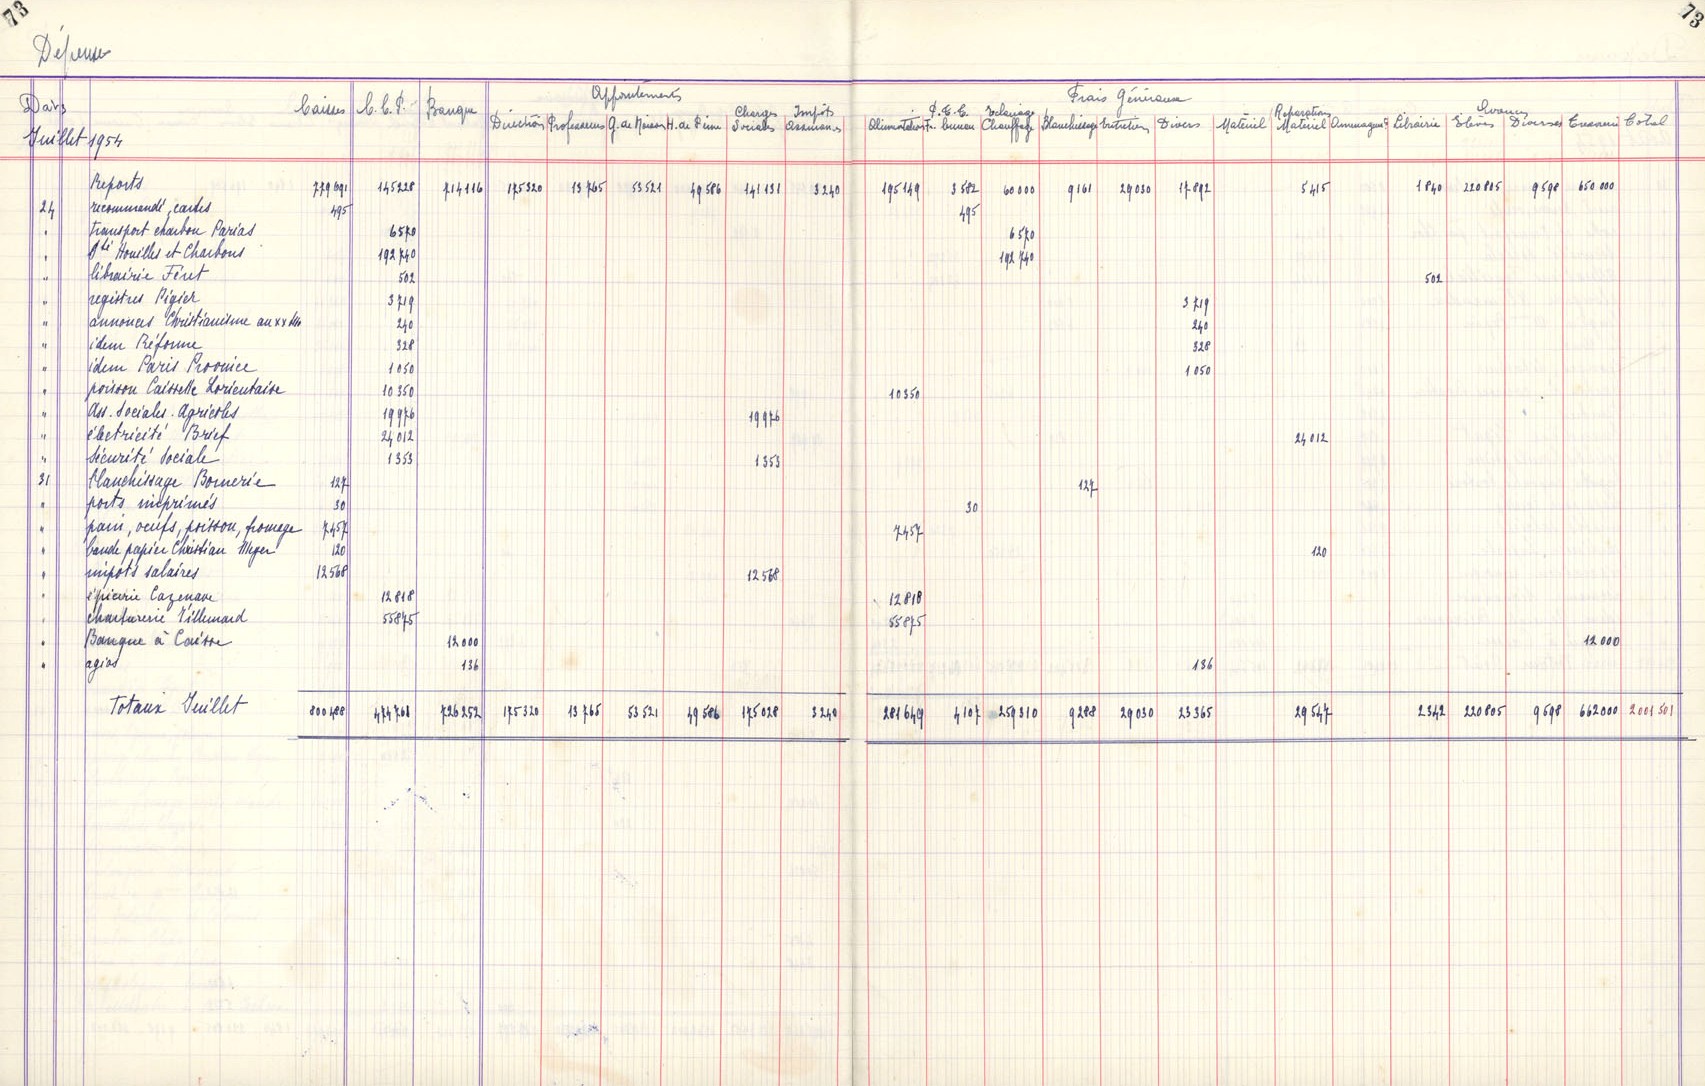 73 73
Dépenses
Appointements Frais Généraux
Dates Caisses C.C.P. Banque Direction Professeurs G. de Maison H. de Peine Charges Sociales Impôts Assurances Alimentation P.T.T. fr. bureau Eclairage Chauffage Blanchissage Entretien Divers Matériel Réparations Matériel Aménagemt Librairie Avances Elèves Diverses Total
Juillet 1954
Reports 779691 145228 714116 175320 13765 53521 49586 141131 3240 195149 3582 60000 9161 29030 17892 5415 1840 220805 9598 650000
24 recommandé, cartes 495 495
" transport charbon Parias 6570 6570
" Sté Houilles et Charbons 192740 192740
" librairie Féret 502 502
" registres Pigier 3719 3719
" annonces Christianisme au xx 240 240
" idem Réforme 328 328
" idem Paris Province 1050 1050
" poisson Caissette Lorientaise 10350 10350
" Ass. Sociales Agricoles 19976 19976
" électricité Brief 24012 24012
" Sécurité Sociale 1353 1353
31 blanchissage Bornerie 127 127
" ports imprimés 30 30
" pain, oeufs, poisson, fromage 7457 7457
" bande papier Christian Meyer 120 120
" impôts salaires 12568 12568
" épicerie Cazenave 12818 12818
" charcuterie Villemard 55875 55875
" Banque à Caisse 12000 12000
" agios 136 136
Totaux Juillet 800488 474761 726252 175320 13765 53521 49586 175028 3240 281649 4107 259310 9288 29030 23365 29547 2342 220805 9598 662000 2001501